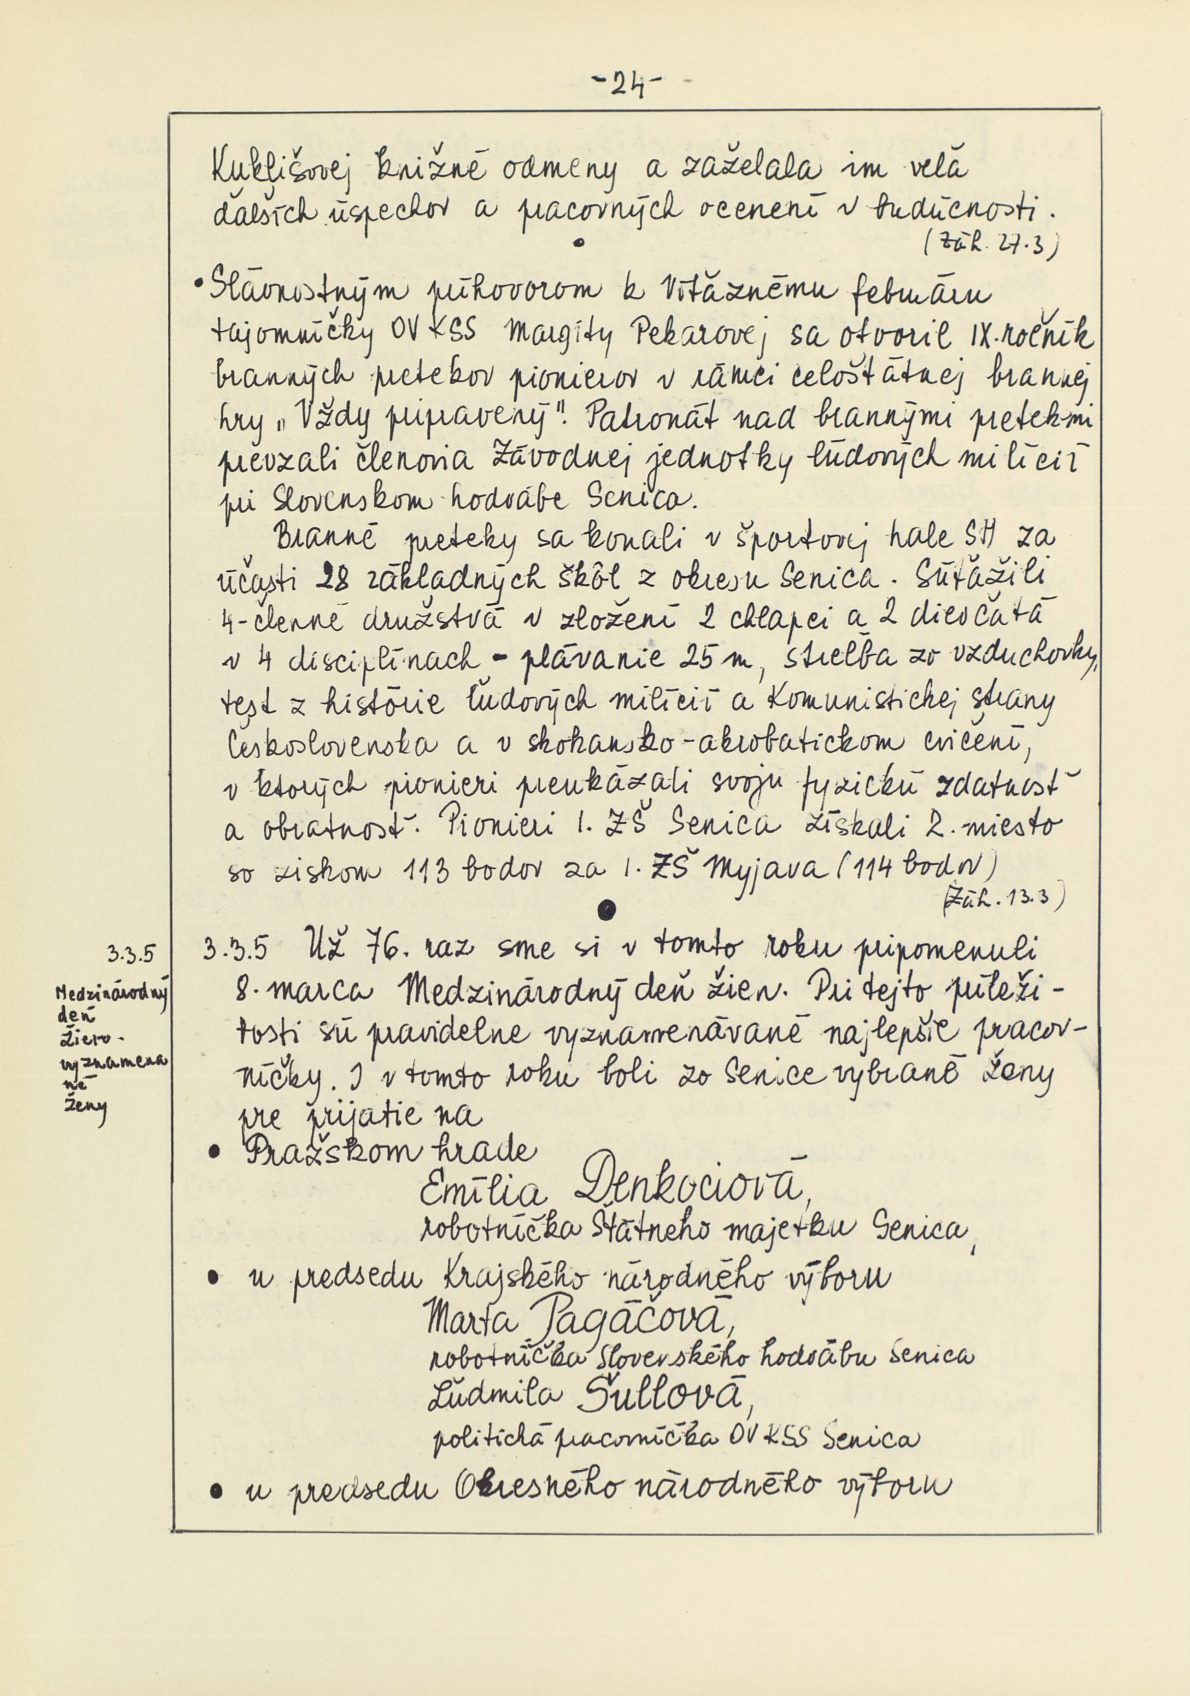 -24-
Kuklišovej knižné odmeny a zaželala im veľa
ďalších úspechov a pracovných ocenení v budúcnosti.
(Záh. 27.3)
• Slávnostným príhovorom k Víťaznému februáru
tajomníčky OV KSS Margity Pekarovej sa otvoril IX. ročník
branných pretekov pionierov v rámci celoštátnej brannej
hry „Vždy pripravený". Patronát nad brannými pretekmi
prevzali členovia Závodnej jednotky ľudových milícií
pri Slovenskom hodvábe Senica.
Branné preteky sa konali v športovej hale SH za
účasti 28 základných škôl z okresu Senica. Súťažili
4-členné družstvá v zložení 2 chlapci a 2 dievčatá
v 4 disciplínach - plávanie 25 m, streľba zo vzduchovky,
test z histórie ľudových milícií a Komunistickej strany
Československa a v skokansko-akrobatickom cvičení,
v ktorých pionieri preukázali svoju fyzickú zdatnosť
a obratnosť. Pionieri I. ZŠ Senica získali 2. miesto
so ziskom 113 bodov za I. ZŠ Myjava (114 bodov)
(Záh. 13.3)
3.3.5
Medzinárodný
deň
žien -
vyznamena
né
ženy
3.3.5 Už 76. raz sme si v tomto roku pripomenuli
8. marca Medzinárodný deň žien. Pri tejto príleži-
tosti sú pravidelne vyznamenávané najlepšie pracov-
níčky. I v tomto roku boli zo Senice vybrané ženy
pre prijatie na
• Pražskom hrade
Emília Denkociová,
robotníčka Štátneho majetku Senica,
• u predsedu Krajského národného výboru
Marta Pagáčová,
robotníčka Slovenského hodvábu Senica
Ľudmila Šullová,
politická pracovníčka OV KSS Senica
• u predsedu Okresného národného výboru